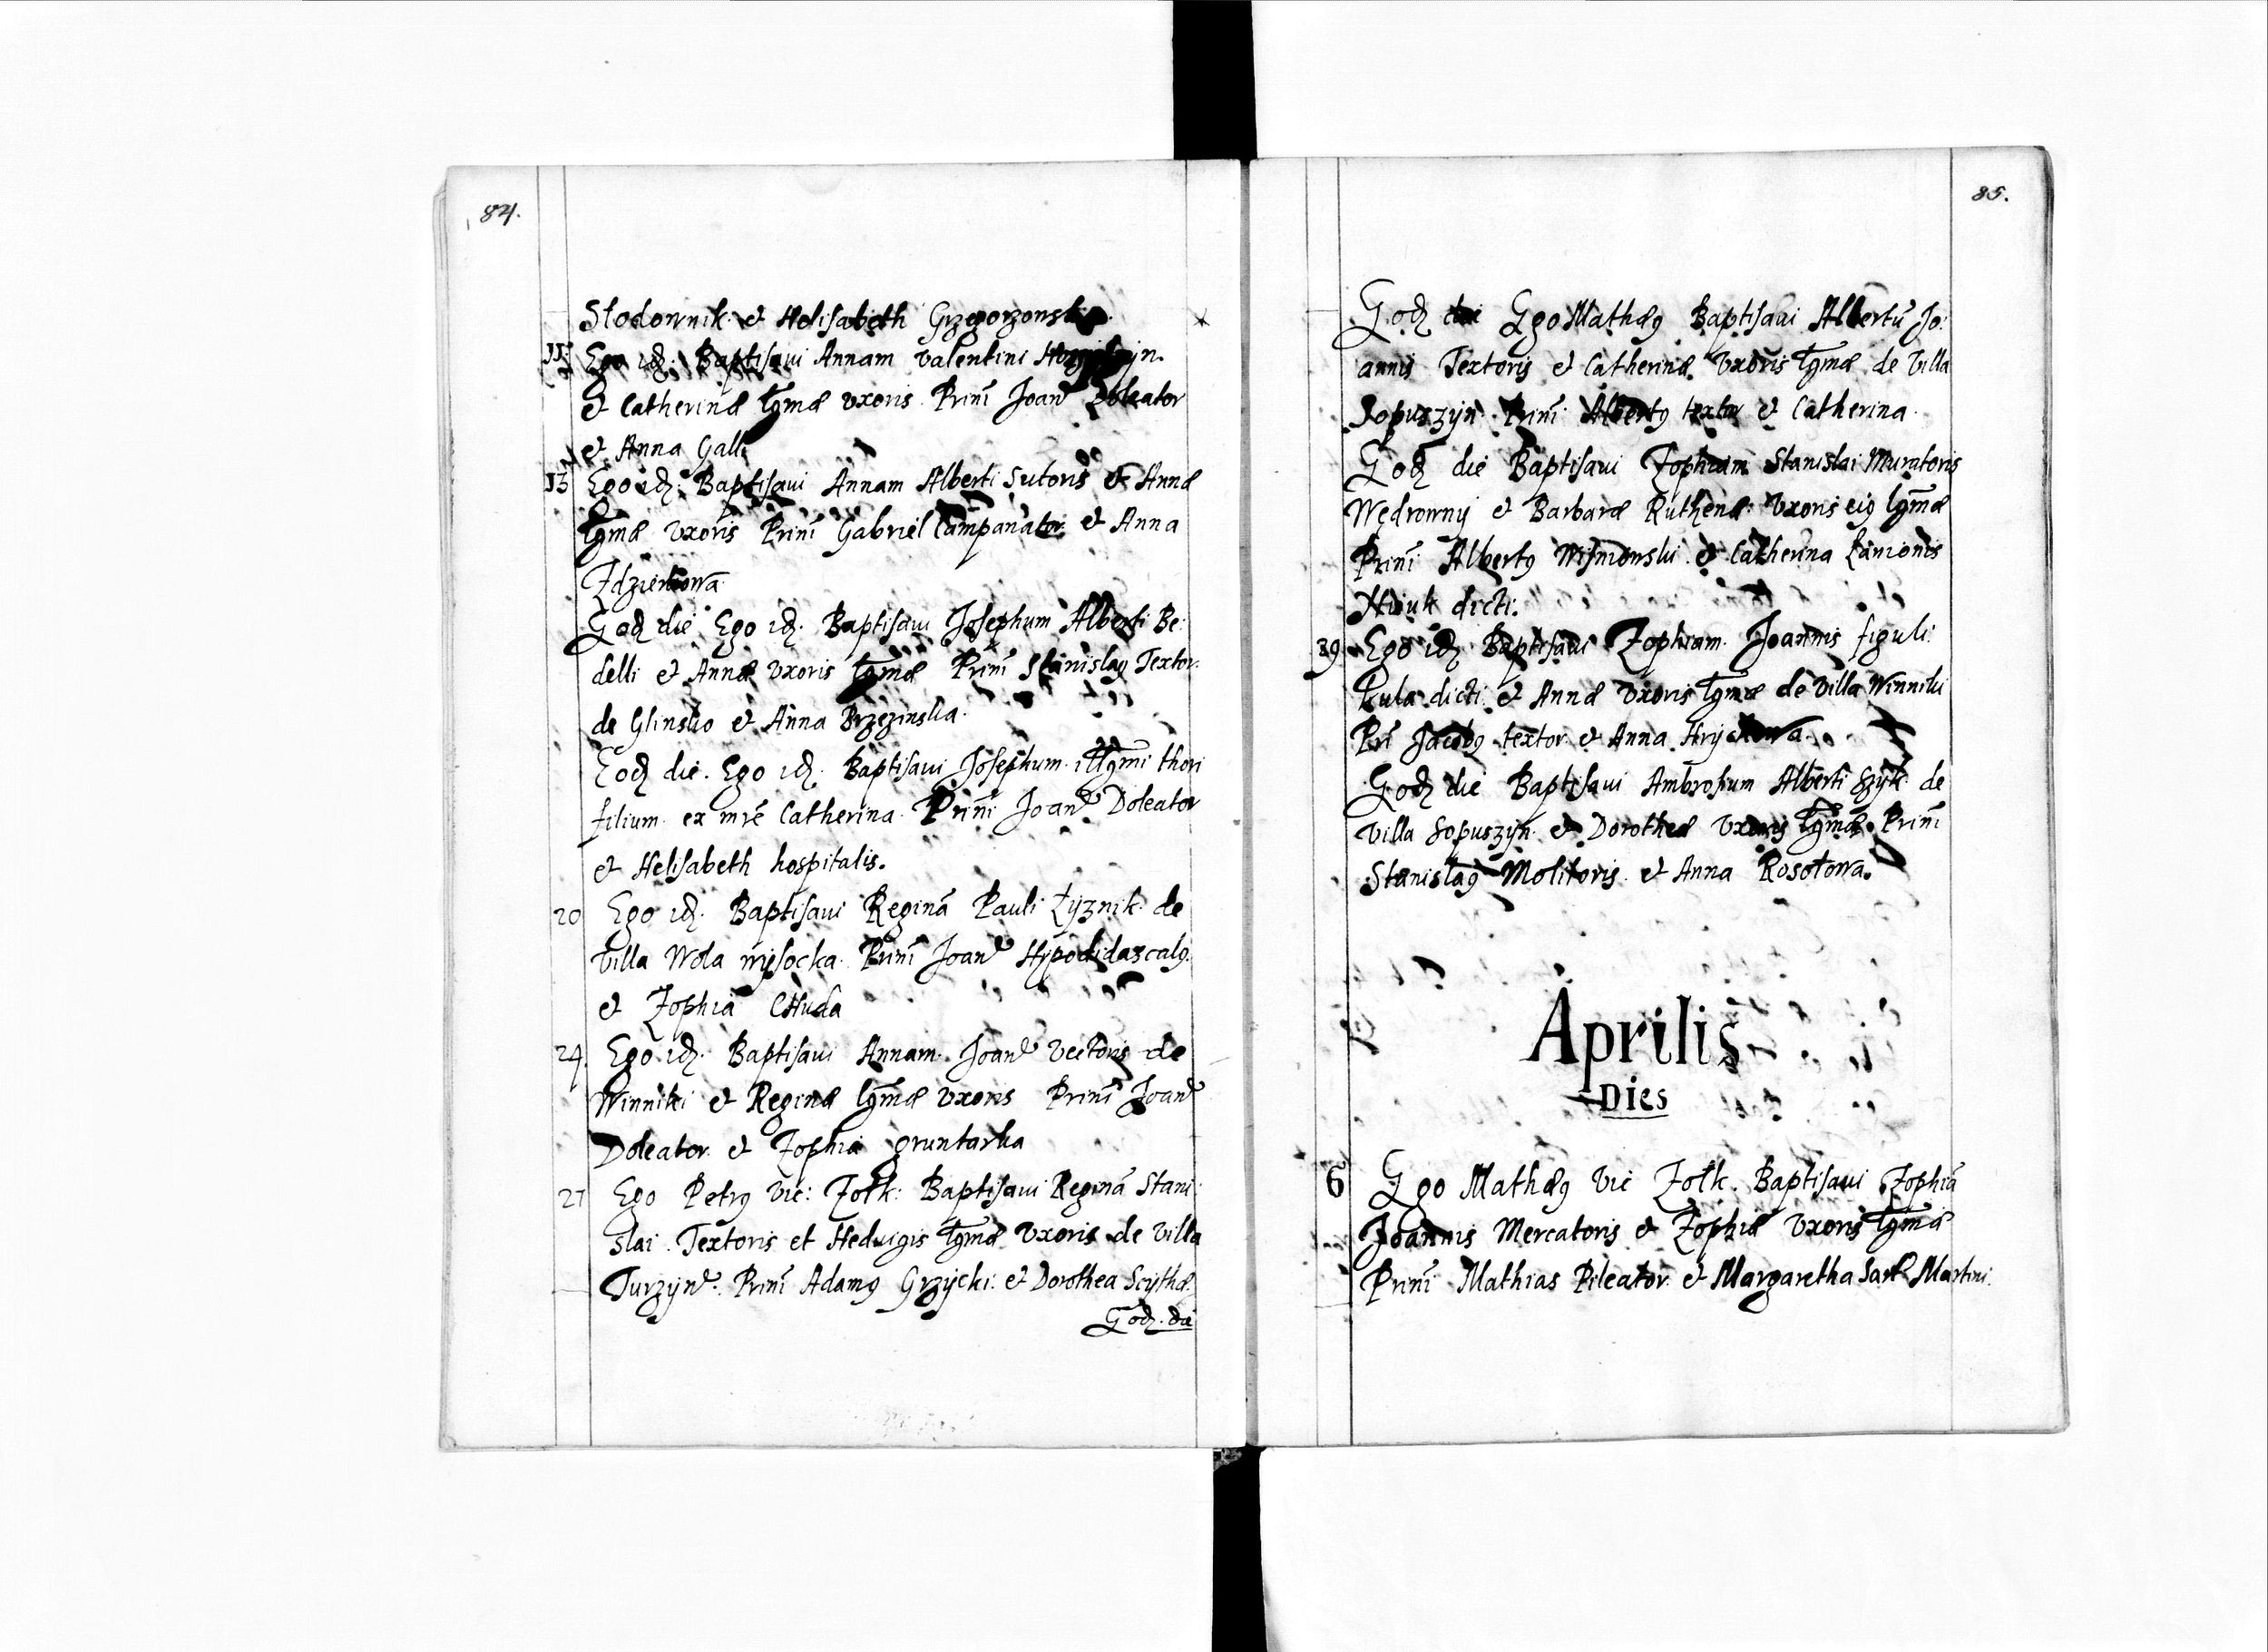 84.
Słodownik et Helisabeth Grzegorzonsk
11 Ego idẽ. Baptisaui Annam Valentini
et Catherinæ lg̃mæ vxoris Prini Joañ Doleator
et Anna Galli
13 Ego idẽ: Baptisaui Annam Alberti Sutoris et Annæ
lg̃mæ vxoris Prini Gabriel Campanator et Anna
Eodẽ die Ego idẽ. Baptisaui Josephum Alberti Be:
delli et Annæ vxoris lg̃mæ Prini Stanislaꝰ Textor
de Glinsko et Anna Brzezinska.
Eodẽ die. Ego idẽ. Baptisaui Josephum illg̃mi thori
filium ex mr̃e Catherina. Prini Joañ Doleator
et Helisabeth hospitalis.
20 Ego idẽ. Baptisaui Reginã Pauli Łyznik de
Villa Wola wysocka. Prini Joañ Hypodidascalꝰ.
et Zophia CHuda
24. Ego idẽ. Baptisaui Annam Joañ Vectoris de
Winniki et Reginæ lg̃mæ vxoris Prini Joañ
Doleator et Zophia gruntarka
27 Ego Petrꝰ Vic: Zołk: Baptisaui Reginã Stani:
slai Textoris et Heduigis lg̃mæ Vxoris de Villa
Turzyn. Prini Adamꝰ Grzycki et Dorothea Scythæ.
Eodẽ. die
85.
Eodẽ die Ego Mathæꝰ Baptisaui Albertũ Jo:
annis Textoris et Catherinæ Vxoris lg̃mæ de Villa
Sopuszyn Prini Albertꝰ textor et Catherina
Eodẽ die Baptisaui Zophiam Stanislai Muratoris
Wędrowny et Barbaræ Ruthenæ Vxoris eiꝰ lg̃mæ
Prini Albertꝰ Wisniowski et Catherina Lanionis
dicti.
29. Ego idẽ Baptisaui Zophiam Joannis figuli
Kula dicti et Annæ Vxoris lg̃mæ de Villa Winniki
Pri Jacobꝰ textor et Anna Hryckowa.
Eodẽ die Baptisaui Ambrosium Alberti Szyk de
Villa Sopuszyn et Dorotheæ Vxoris lg̃mæ Prini
Stanislaꝰ Molitoris et Anna Rosołowa.
Aprilis
Dies
6 Ego Mathæꝰ Vic Zołk. Baptisaui Zophiã
Joannis Mercatoris et Zophiæ Vxoris lg̃mæ
Prini Mathias Pileator et Margaretha Sart Martini